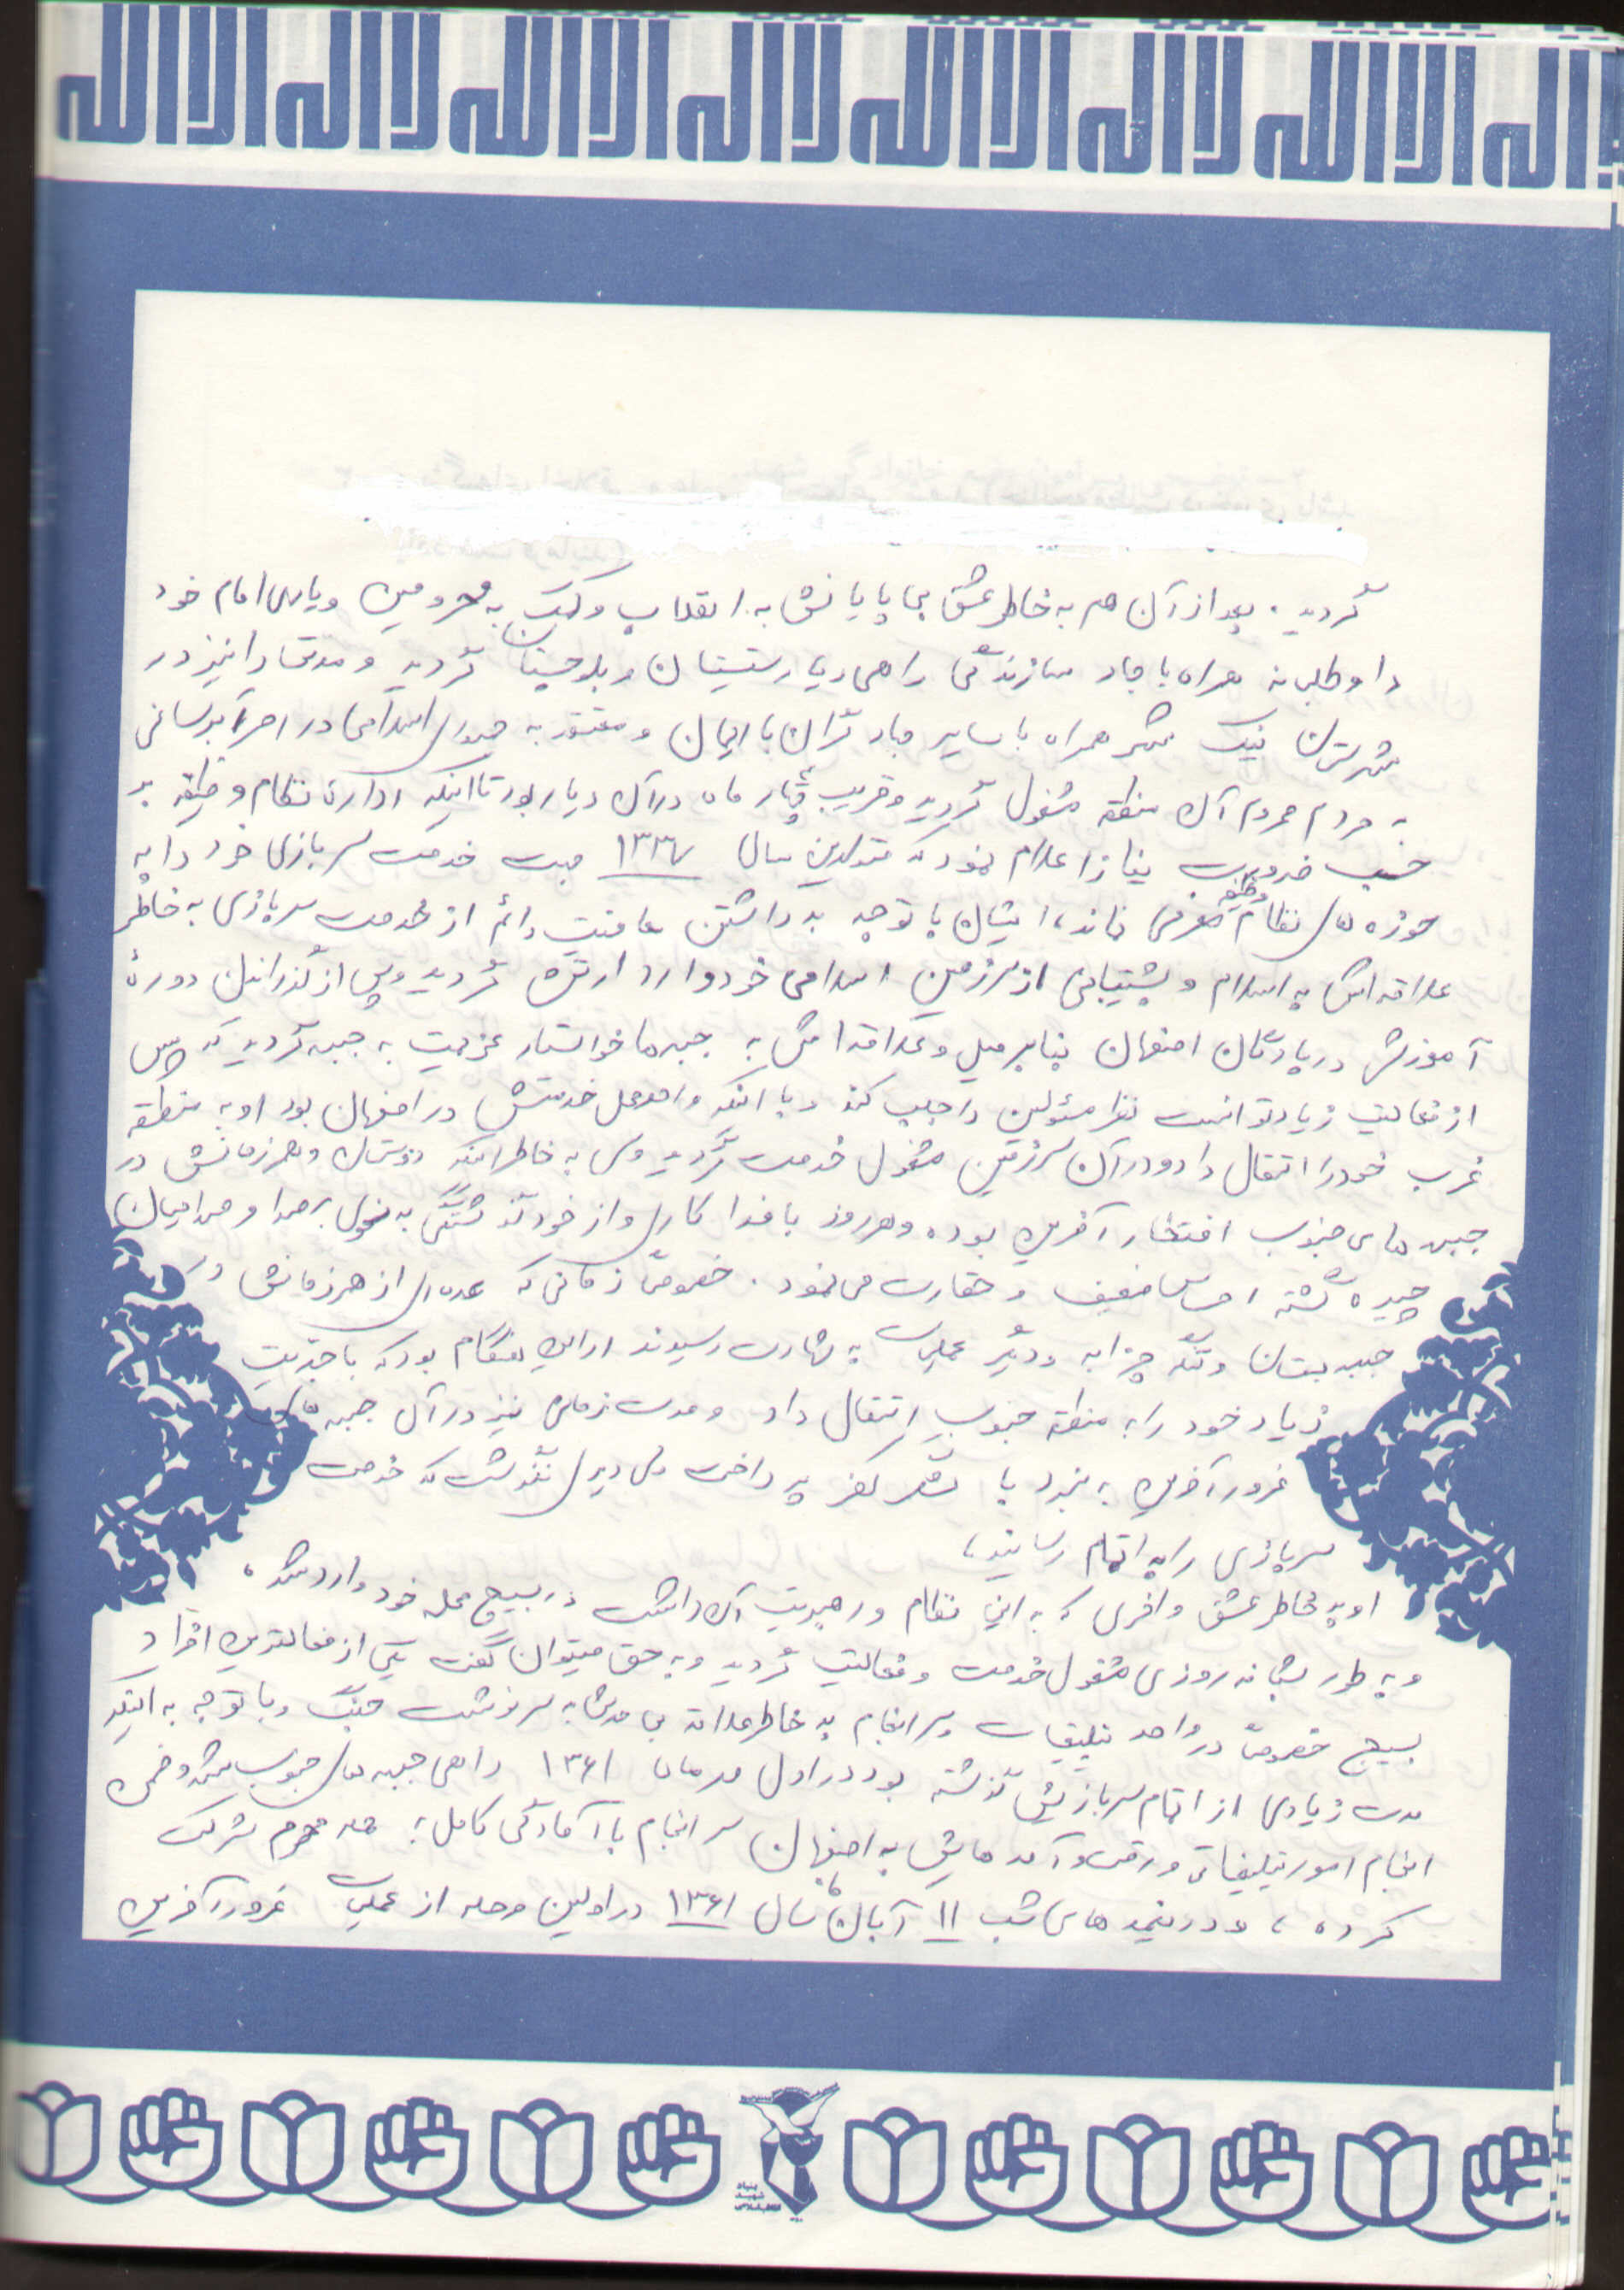 لا اله الا الله لا اله الا الله لا اله الا الله لا اله الا الله
گردید . بعد از آن هم به خاطر عشق بی پایانش به انقلاب و کمک به محرومین و یاری امام خود
داوطلبانه همراه با جهاد سازندگی راهی دیار سیستان و بلوچستان گردید و مدتی را نیز در
شهرستان نیک شهر همراه با سایر جهادگران با ایمان و معتقد به جمهوری اسلامی در امر آبرسانی
به مردم محروم آن منطقه مشغول گردید و قریب چهار ماه در آن دیار بود تا اینکه اداره نظام وظیفه بر
حسب ضرورت نیاز اعلام نمود که متولدین سال ۱۳۳۷ جهت خدمت سربازی خود را به
حوزه های نظام وظیفه معرفی نمایند، ایشان با توجه به داشتن معافیت دائم از خدمت سربازی به خاطر
علاقه اش به اسلام و پشتیبانی از سرزمین اسلامی خود وارد ارتش گردید و پس از گذراندن دورهٔ
آموزش در پادگان اصفهان بنابر میل و علاقه اش به جبهه ها خواستار عزیمت به جبهه گردید که پس
از فعالیت زیاد توانست نظر مسئولین را جلب کند و با اینکه واحد محل خدمتش در اصفهان بود او به منطقه
غرب خود را انتقال داد و در آن سرزمین مشغول خدمت گردید ولی به خاطر اینکه دوستان و همرزمانش در
جبهه های جنوب افتخار آفرین بوده و هر روز با فداکاری و از خود گذشتگی به نحوی بر صدام و صدامیان
چیره گشته احساس ضعف و حقارت می نمود . خصوصاً زمانی که عده ای از همرزمانش در
جبهه بستان و تنگه چزابه و دیگر عملیات به شهادت رسیدند در این هنگام بود که با جدیت
زیاد خود را به منطقه جنوب انتقال داد و مدت زمانی نیز در آن جبهه های
غرور آفرین به نبرد با لشکر کفر پرداخت ولی دیری نگذشت که خدمت
سربازی را به اتمام رسانید،
او به خاطر عشق وافری که به این نظام و رهبریت آن داشت در بسیج محله خود وارد شد ،
و به طور شبانه روزی مشغول خدمت و فعالیت گردید و به حق میتوان گفت یکی از فعالترین افراد
بسیج خصوصاً در واحد تبلیغات و سرانجام به خاطر علاقه بی حدش به سرنوشت جنگ و با توجه به اینکه
مدت زیادی از اتمام سربازیش گذشته بود در اول مهرماه ۱۳۶۱ راهی جبهه های جنوب شد و ضمن
انجام امور تبلیغاتی و رفت و آمد هایش به اصفهان سرانجام با آمادگی کامل به حمله محرم شرکت
کرده ، و در نیمه های شب ۱۱ آبان ماه سال ۱۳۶۱ در اولین مرحله از عملیات غرور آفرین
بنیاد
شهید
انقلاب اسلامی